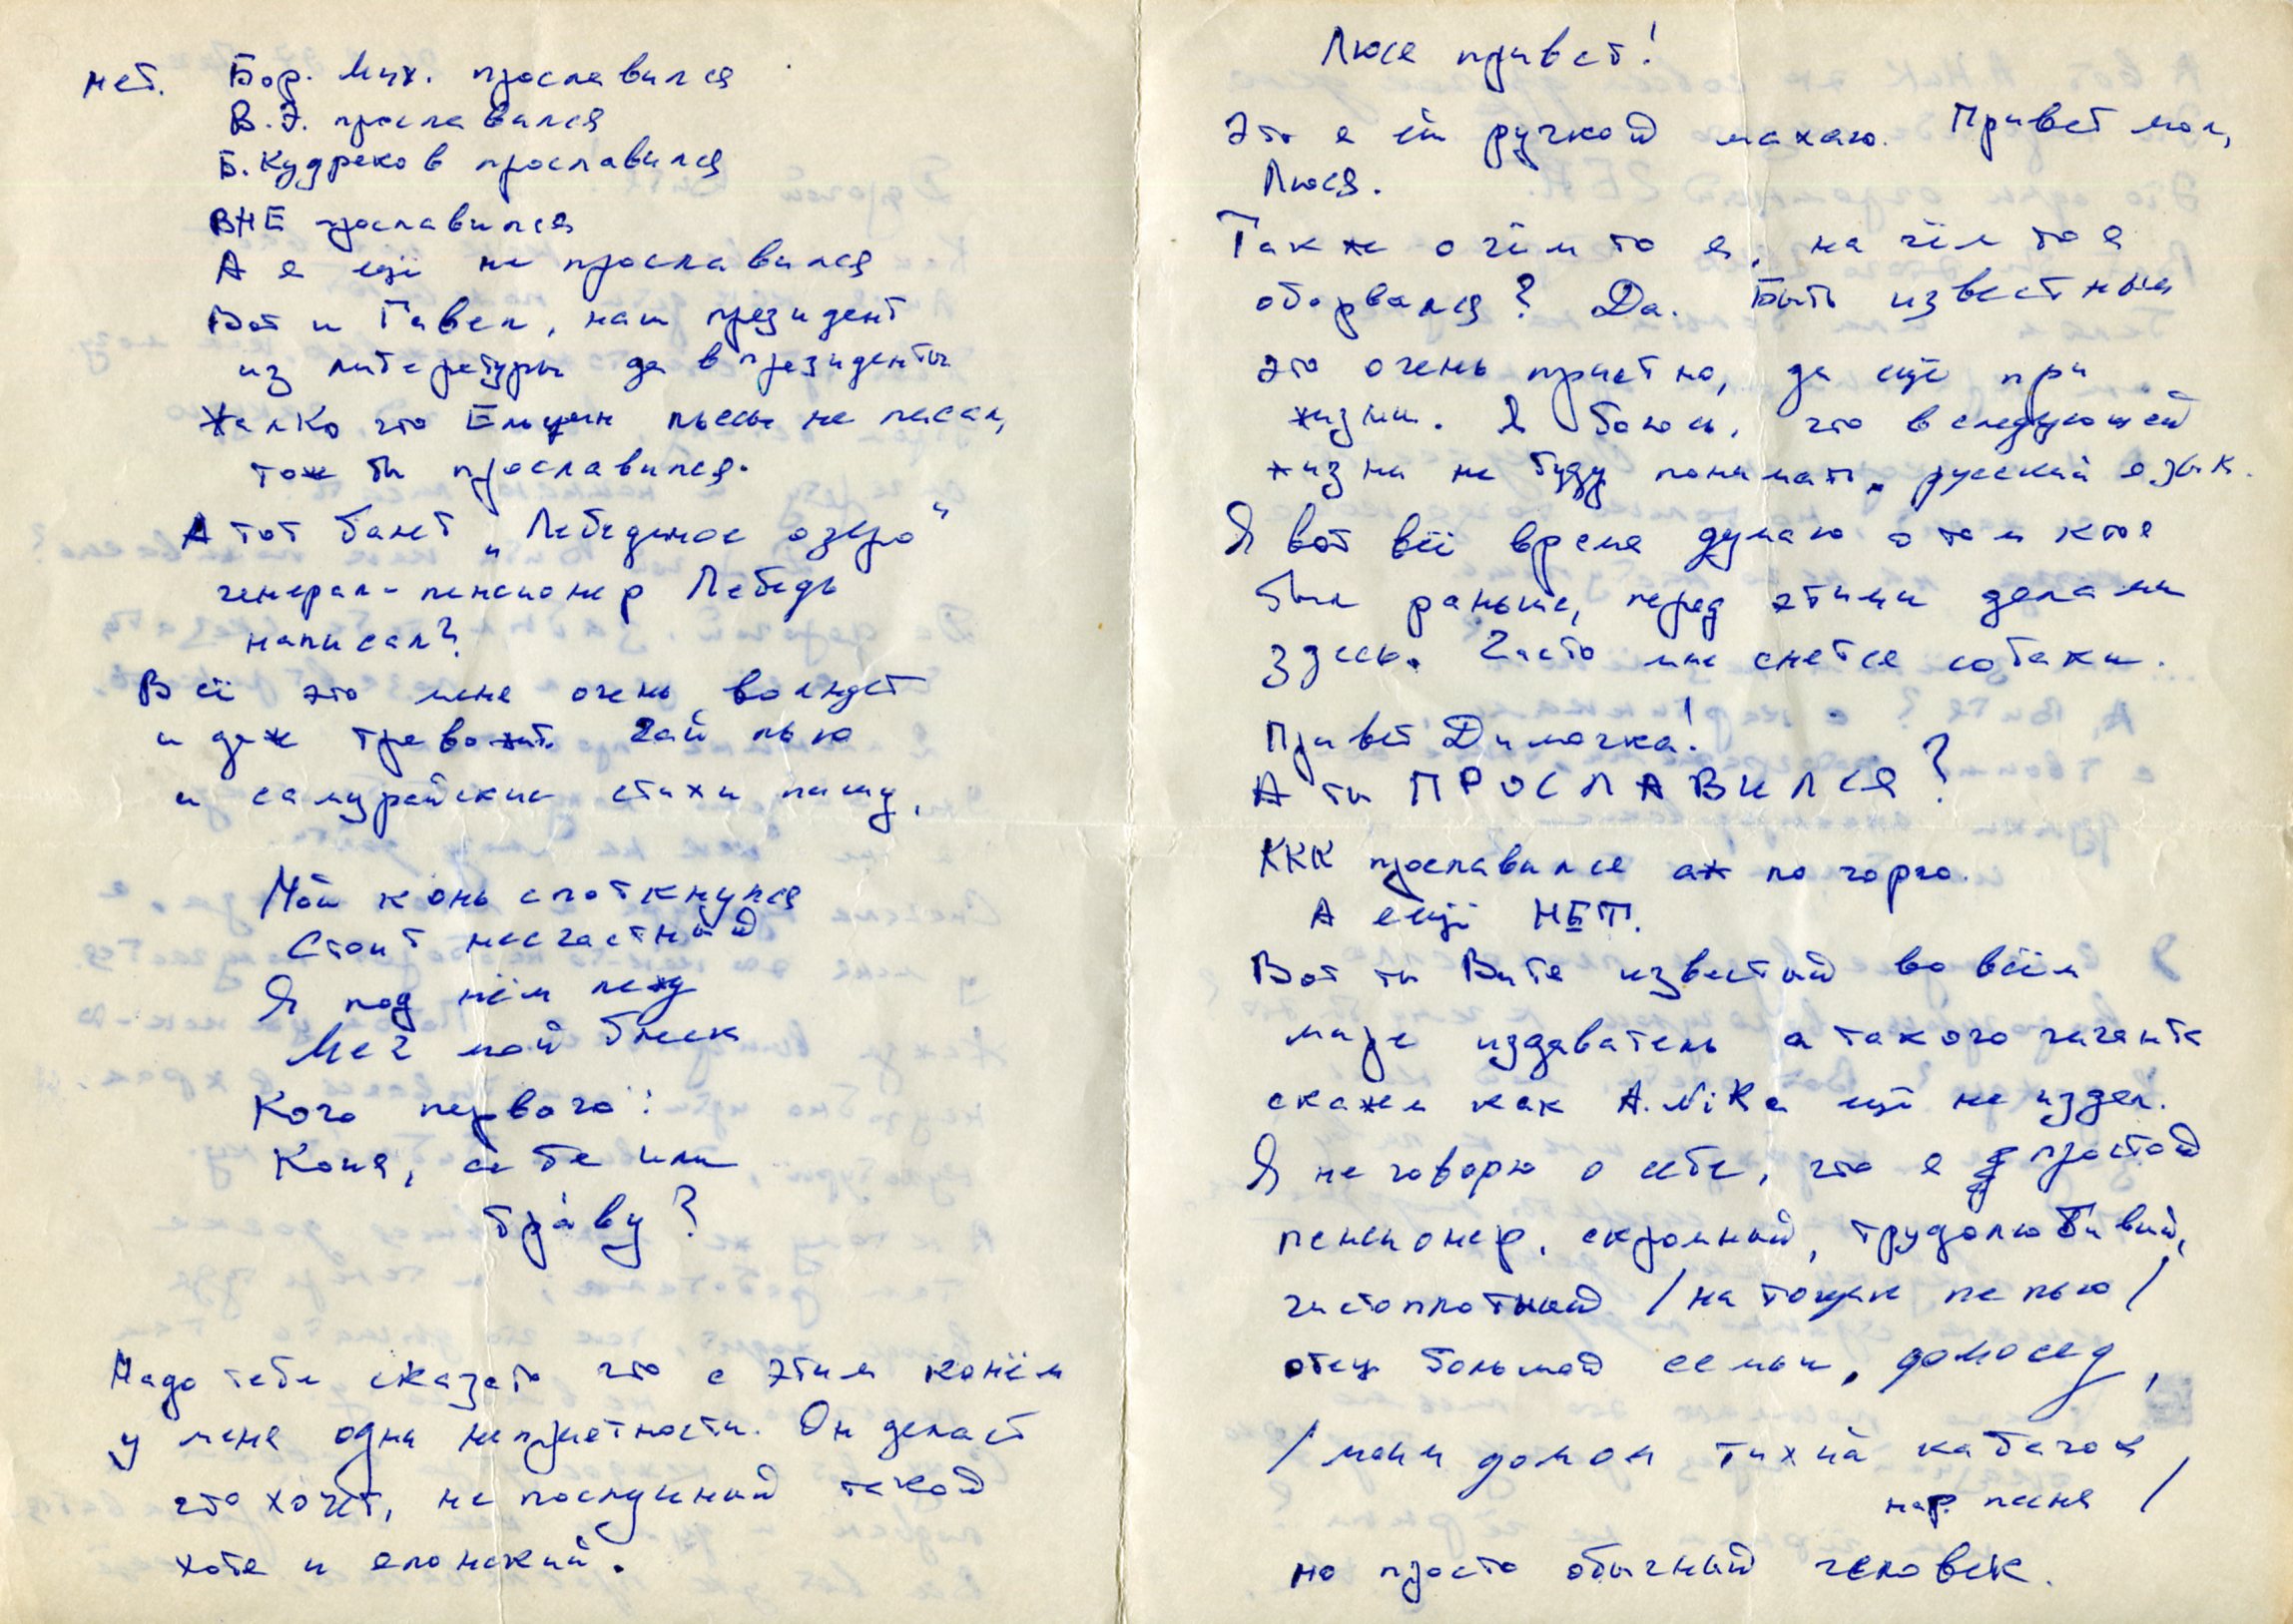 нет. Бор. Мих. прославился
В.Э. прославился
Б. Кудряков прославился
ВНЕ прославился
А я ещё не прославился
Вот и Гавел, наш президент
из литературы да в президенты
Жалко что Ельцын пьесы не писал,
тож бы прославился.
А тот балет „Лебединое озеро"
генерал-пенсионер Лебедь
написал?
Всё это меня очень волнует
и даж тревожит. Чай пью
и самурайские стихи пишу.
Мой конь споткнулся
Стоит несчастный
Я под нём лежу
Меч мой блеск
Кого первого:
Коня, себя или
траву?
Надо тебе сказать что с этим конём
у меня одни неприятности. Он делает
что хочет, не послушный такой
хотя и японский.
Люся привет!
Это я ей ручкой махаю. Привет мол,
Люся.
Так же о чём то я, на чём то я
оборвался? Да. Быть известным
это очень приятно, да ещё при
жизни. Я боюсь, что в следующей
жизни не буду понимать русский язык.
Я вот всё время думаю о том кто я
был раньше, перед этими делами
здесь. Часто мне снятся собаки.
Привет Димочка!
А ты ПРОСЛАВИЛСЯ?
ККК прославился аж по горло.
А ещё НЕТ.
Вот ты Витя известный во всём
мире издатель а такого гиганта
скажем как A.NiKa ещё не издал.
Я не говорю о себе, что я простой
пенсионер, скромный, трудолюбивый,
чистоплотный /на тощак не пью/
отец большой семьи, домосед,
/моим домом тихий кабачок
нар. песня /
но просто обычный человек.